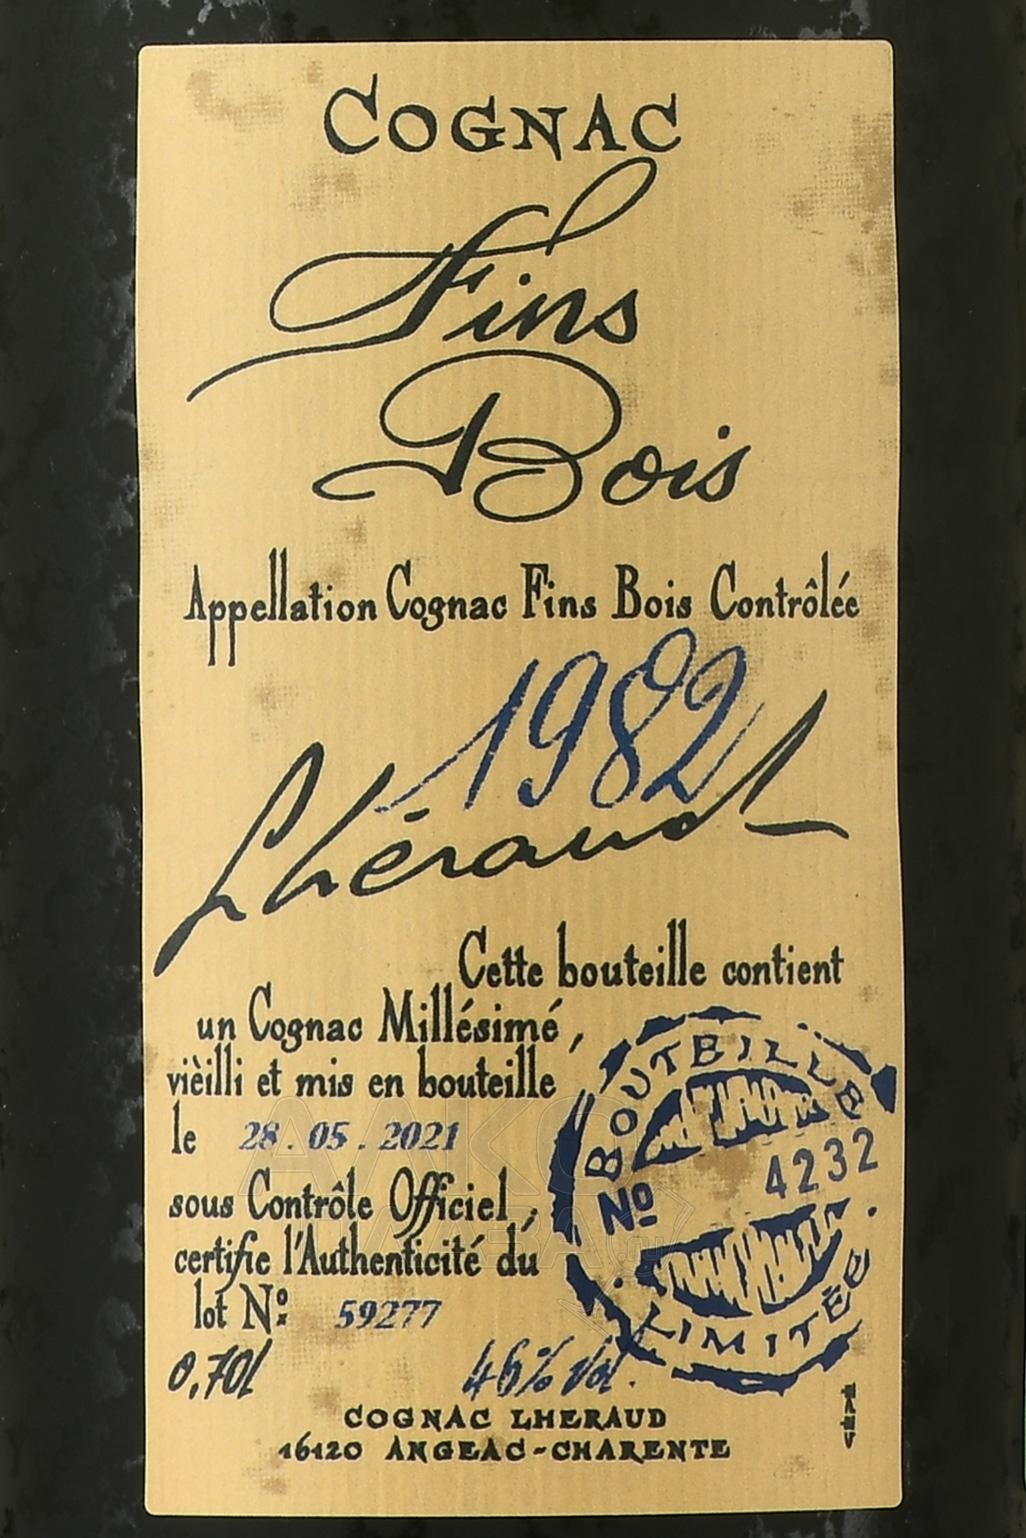 COGNAC
Fins
Bois
Appellation Cognac Fins Bois Contrôlée
1982
Lhéraud
Cette bouteille contient
un Cognac Millésimé,
vièilli et mis en bouteille
le 28.05.2021
sous Contrôle Officiel,
certifie l'Authenticité du
lot Nº: 59277
BOUTEILLE
Nº 4232
LIMITÉE
0,70l 46% Vol.
COGNAC LHERAUD
16120 ANGEAC-CHARENTE